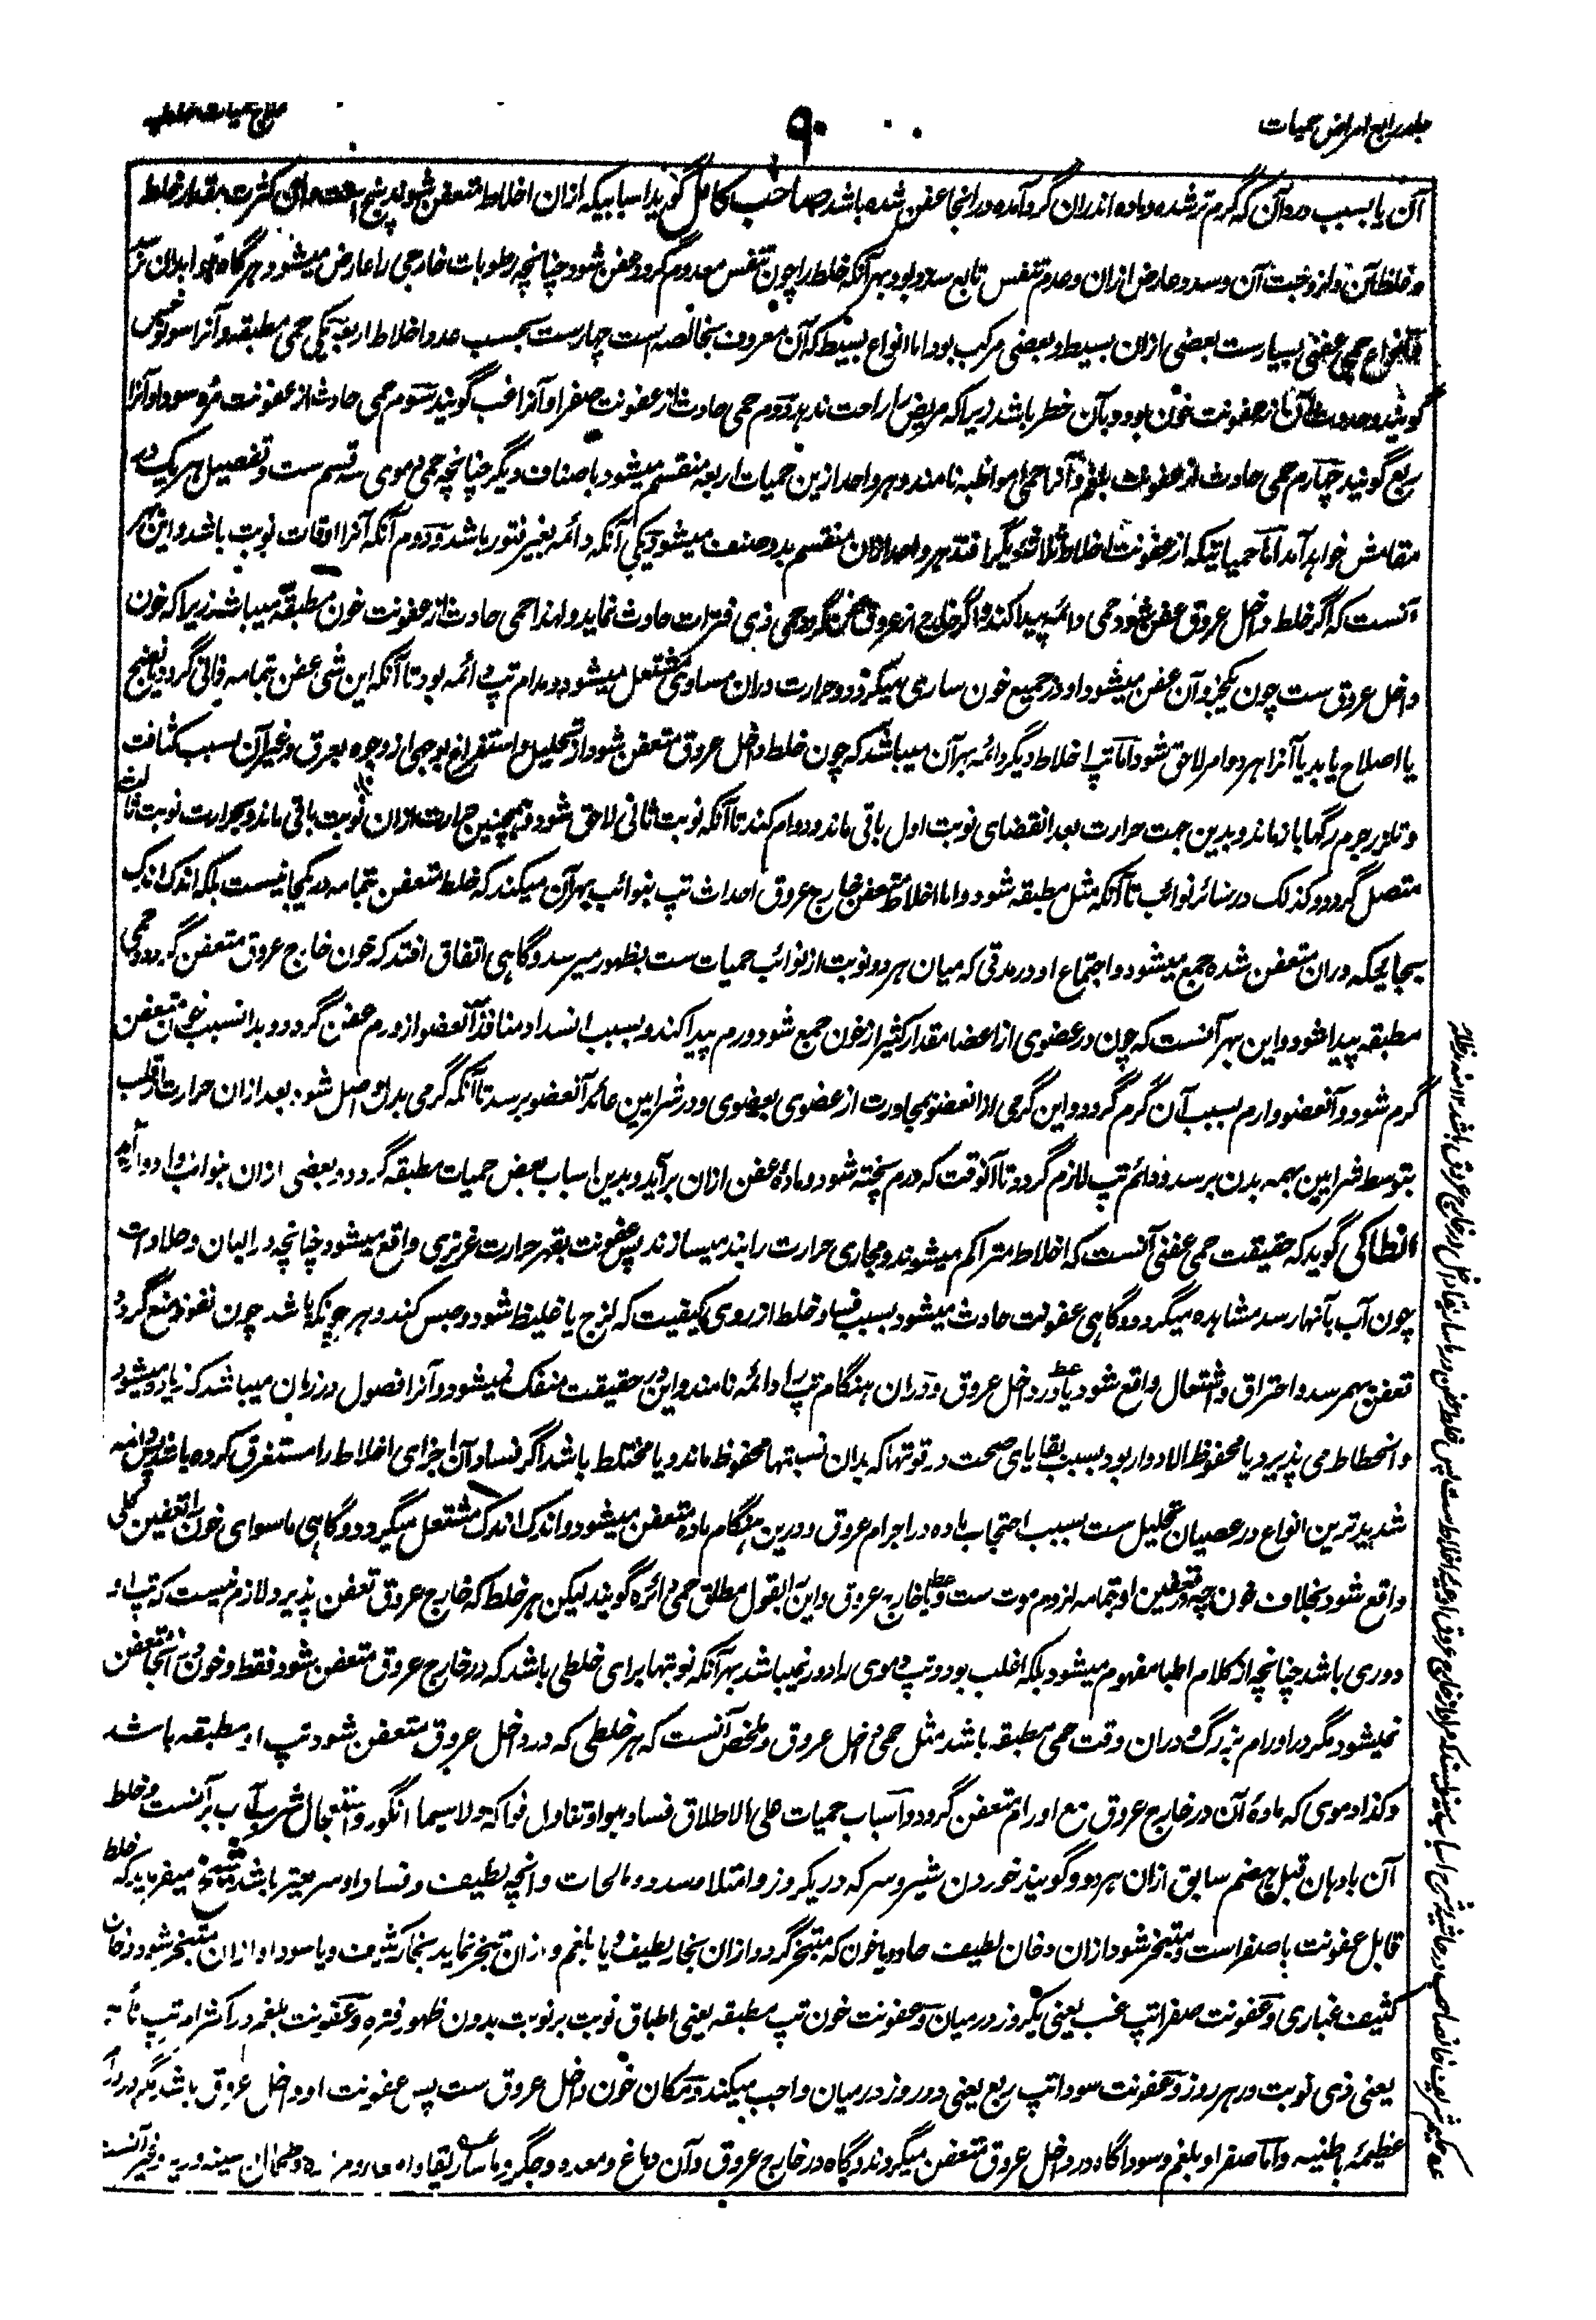 جلد رابع امراض حمیات
۹۰
علاج حمیات خلطیه
آن یا بسبب درو آن که گرم تر شده و ماده اندران گرد آمده در انجا عفن شده باشد صاحب کامل گوید اسبابیکه ازان اخلاط متعفن شوند پنج است کثرت مقدار خلط
و غلظ آن و لزوجت آن و سدد عارض ازان و عدم تنفس تابع سدد بود بهر آنکه خلط را چون تنفس معدوم گردد عفن شود چنانچه رطوبات خارجی را عارض میشود و هرگاه
انواع حمی عفنی بسیارست بعضی ازان بسیط و بعضی مرکب بود اما انواع بسیط که آن معروف بخالصه است چهارست بحسب عدد اخلاط اربعه یکی حمی مطبقه و آنرا سونوخس
گویند و حدوث آن از عفونت خون بود و بآن خطر باشد زیرا که مریض را راحت ندهد دوم حمی حادث از عفونت صفرا و آنرا غب گویند سوم حمی حادث از عفونت مره سودا و آنرا
ربع گویند چهارم حمی حادث از عفونت بلغم و آنرا حمی مواظبه نامند و هر واحد ازین حمیات اربعه منقسم میشود باصناف دیگر چنانچه حمی دموی سه قسم ست و تفصیل هریک در
مقامش خواهد آمد اما حمیاتیکه از عفونت اخلاط ثلاثه دیگر افتد هر واحد ازان منقسم بدو صنف میشود یکی آنکه دائمه بغیر فتور باشد و دوم آنکه آنرا اوقات نوبت باشد و این
آنست که اگر خلط داخل عروق عفن شود حمی دائمه پیدا کند و اگر خارج از عروق عفن گردد حمی ذی فترات حادث نماید و لهذا حمی حادث از عفونت خون مطبقه میباشد زیرا که خون
داخل عروق ست چون یکجزو آن عفن میشود او در جمیع خون ساری میگردد و حرارت دران مساوی مشتعل میشود و مدام تپ دائمه بود تا آنکه این شی عفن بتمامه فانی گردد یا نضج
یا اصلاح یابد یا آنرا هر دو امر لاحق شود اما تپ اخلاط دیگر دائمه بهر آن میباشد که چون خلط داخل عروق متعفن شود از تحلیل و استفراغ بوجهی از وجوه بعرق و غیر آن بسبب کثافت
و تلزز جرم رگها باز ماند و بدین جهت حرارت بعد انقضای نوبت اول باقی ماند و دوام کند تا آنکه نوبت ثانی لاحق شود و همچنین حرارت ازان نوبت باقی ماند و بحرارت نوبت ثالث
متصل گردد و کذلک در سائر نوائب تا آنکه مثل مطبقه شود و اما اخلاط متعفن خارج عروق احداث تپ بنوائب بهر آن میکند که خلط متعفن بتمامه در یکجا نیست بلکه اندک اندک
بجاییکه دران متعفن شده جمع میشود و اجتماع او در مدتی که میان هر دو نوبت از نوائب حمیات ست بظهور میرسد و گاهی اتفاق افتد که خون خارج عروق متعفن گردد و حمی
مطبقه پیدا شود و این بهر آنست که چون در عضوی از اعضا مقدار کثیر از خون جمع شود ورم پیدا کند و بسبب انسداد منافذ آنعضو از ورم عفن گردد و بدانسبب خون متعفن
گرم شود و آنعضو وارم بسبب آن گرم گردد و این گرمی ازانعضو بمجاورت از عضوی بعضوی و در شرایین عائد آنعضو برسد تا آنکه گرمی بدل واصل شود بعد ازان حرارت قلب
بتوسط شرایین بهمه بدن برسد و دائم تپ لازم گردد تا آنوقت که ورم پخته شود و ماده عفن ازان برآید و بدین اسباب بعض حمیات مطبقه گردد و بعضی ازان بنوائب و ادوار آید
انطاکی گوید که حقیقت حمی عفنی آنست که اخلاط متراکم میشوند و مجاری حرارت را بند میسازند پس عفونت بقهر حرارت غریزی واقع میشود چنانچه در البان و حلاوات
چون آب بآنها رسد مشاهده میگردد و گاهی عفونت حادث میشود بسبب فساد خلط از روی کیفیت که لزج یا غلیظ شود و حبس کند و هر چونکه باشد چون نفوذ منع گردد
تعفن بهم رسد و احتراق و اشتعال واقع شود یا در داخل عروق و دران هنگام تپ را دائمه نامند و این در حقیقت منفک نمیشود و آنرا فصول در زمان میباشد که زیاده میشود
و انحطاط می پذیرد یا محفوظ الادوار بود بسبب بقایای صحت در قوتها که بدان نسبتها محفوظ ماند و یا مختلط باشد اگر فساد آن اجزای اخلاط را مستغرق کرده باشد
شدیدترین انواع در عصیان تحلیل ست بسبب احتجاب ماده در اجرام عروق و درین هنگام ماده متعفن میشود و اندک اندک مشتعل میگردد و گاهی ماسوای خون را تعفین کلی
واقع شود بخلاف خون چه در تعفین او بتمامه لزوم موت ست و یا خارج عروق و این را بقول مطلق حمی دائره گویند لیکن هر خلط که خارج عروق تعفن پذیرد لازم نیست که تپ او
دوری باشد چنانچه از کلام اطبا مفهوم میشود بلکه اغلب بود و تپ دموی را دور نمیباشد بهر آنکه نوبتها برای خلطی باشد که در خارج عروق متعفن شود فقط و خون در آنجا متعفن
نمیشود مگر در اورام بزرگ و دران وقت حمی مطبقه باشد مثل حمی داخل عروق و ملخص آنست که هر خلطی که در داخل عروق متعفن شود تپ او مطبقه باشد
و کذا دموی که ماده آن در خارج عروق مع اورام متعفن گردد و اسباب حمیات علی الاطلاق فساد هوا و تناول فواکه ولاسیما انگور و استعجال شرب آب بر آنست و خلط
آن بادهان قبل هضم سابق ازان هر دو و گویند خوردن شیر و سرکه در یکروز و امتلا مسدد و مالحات و انچه لطیف و فساد او سریعتر باشد شیخ میفرماید که خلط
قابل عفونت یا صفراست و متبخر شود ازان دخان لطیف حاد و یا خون که متبخر گردد ازان بخار لطیف و یا بلغم و ازان تبخر نماید بخار کثیف و یا سودا و ازان متبخر شود دخان
کثیف غباری و عفونت صفرا تپ غب یعنی یکروز در میان و عفونت خون تپ مطبقه یعنی اطباق نوبت بر نوبت بدون ظهور فتره و عفونت بلغم در اکثر امر تپ نائبه
یعنی ذی نوبت در هر روز و عفونت سودا تپ ربع یعنی دو روز در میان واجب میکند و مکان خون داخل عروق ست پس عفونت او داخل عروق باشد مگر در
عظیمه باطنیه و اما صفرا و بلغم و سودا گاه در داخل عروق متعفن میگردند و گاه در خارج عروق و آن دماغ و معده و جگر و ماساریقا و امعا و سینه و ریه و غیر آنست